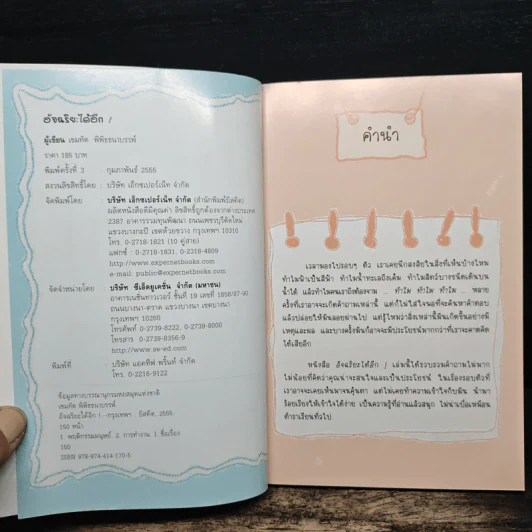 อัจฉริยะได้อีก !
ผู้เขียน เขมทัต พิพิธธนาบรรพ์
ราคา 185 บาท
พิมพ์ครั้งที่ 3 : กุมภาพันธ์ 2555
สงวนลิขสิทธิ์โดย : บริษัท เอ็กซเปอร์เน็ท จำกัด
จัดพิมพ์โดย : บริษัท เอ็กซเปอร์เน็ท จำกัด (สำนักพิมพ์บิสคิต)
ผลิตหนังสือดีมีคุณค่า ลิขสิทธิ์ถูกต้องจากต่างประเทศ
2387 อาคารรวมทุนพัฒนา ถนนเพชรบุรีตัดใหม่
แขวงบางกะปิ เขตห้วยขวาง กรุงเทพฯ 10310
โทร. 0-2718-1821 (10 คู่สาย)
แฟกซ์ : 0-2718-1831, 0-2719-4609
http://www.expernetbooks.com
e-mail: public@expernetbooks.com
จัดจำหน่ายโดย : บริษัท ซีเอ็ดยูเคชั่น จำกัด (มหาชน)
อาคารเนชั่นทาวเวอร์ ชั้นที่ 19 เลขที่ 1858/87-90
ถนนบางนา-ตราด แขวงบางนา เขตบางนา
กรุงเทพฯ 10260
โทรศัพท์ 0-2739-8222, 0-2739-8000
โทรสาร 0-2739-8356-9
http://www.se-ed.com
พิมพ์ที่ : บริษัท แอคทีฟ พริ้นท์ จำกัด
โทร. 0-2216-9122
ข้อมูลทางบรรณานุกรมหอสมุดแห่งชาติ
เขมทัต พิพิธธนาบรรพ์
อัจฉริยะได้อีก !.--กรุงเทพฯ : บิสคิต, 2555.
150 หน้า
1. พฤติกรรมมนุษย์ 2. การทำงาน I. ชื่อเรื่อง
160
ISBN 978-974-414-170-5
คำนำ
เวลามองไปรอบๆ ตัว เราเคยนึกสงสัยในสิ่งที่เห็นบ้างไหม
ทำไมฟ้าเป็นสีฟ้า ทำไมน้ำทะเลถึงเค็ม ทำไมสัตว์บางชนิดเดินบน
น้ำได้ แล้วทำไมคนเราถึงต้องจาม ... ทำไม ทำไม ทำไม ... หลาย
ครั้งที่เราอาจจะเกิดคำถามเหล่านี้ แต่ก็ไม่ใส่ใจพอที่จะค้นหาคำตอบ
แล้วปล่อยให้มันลอยผ่านไป แต่รู้ไหมว่าสิ่งเหล่านี้มันเกิดขึ้นอย่างมี
เหตุและผล และบางครั้งมันก็อาจจะมีประโยชน์มากกว่าที่เราจะคาดคิด
ได้เสียอีก
หนังสือ อัจฉริยะได้อีก ! เล่มนี้ได้รวบรวมคำถามไม่มาก
ไม่น้อยที่คิดว่าคุณน่าจะสนใจและเป็นประโยชน์ ในเรื่องรอบตัวที่
เราอาจจะเคยเห็นมาจนคุ้นตา แต่ไม่เคยทำความเข้าใจกับมัน นำมา
ร้อยเรียงให้เข้าใจได้ง่าย เป็นความรู้ที่อ่านแล้วสนุก ไม่น่าเบื่อเหมือน
ตำราเรียนทั่วไป